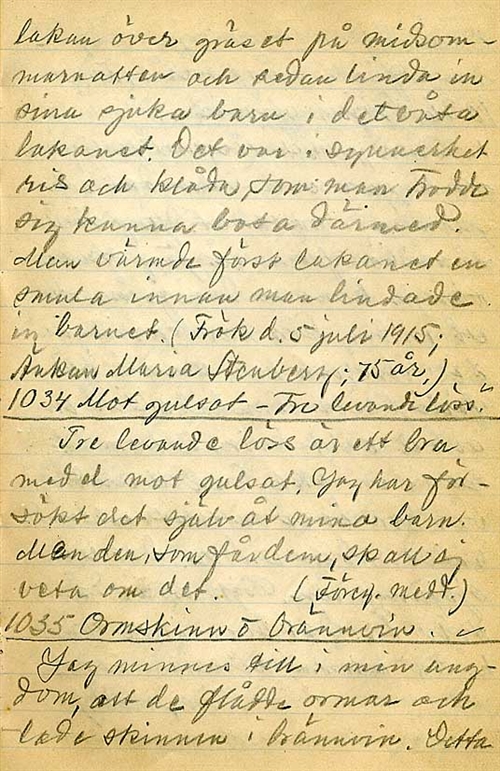 lakan över gräset på midsom-
marnatten och sedan linda in
sina sjuka barn i det våta
lakanet. Det var i synnerhet
ris och klåda, som man trodde
sig kunna bota därmed.
Man värmde först lakanet en
smula innan man lindade
in barnet. (Frök d. 5 juli 1915;
Änkan Maria Stenberg; 75 år.)
1034 Mot gulsot - "Tre levande löss."
Tre levande löss är ett bra
medel mot gulsot. Jag har för-
sökt det själv åt mina barn.
Men den, som får dem, skall ej
veta om det. (Föreg. medd.)
1035 Ormskinn o brännvin.
Jag minnes till i min ung-
dom, att de flådde ormar och
lade skinnen i brännvin. Detta